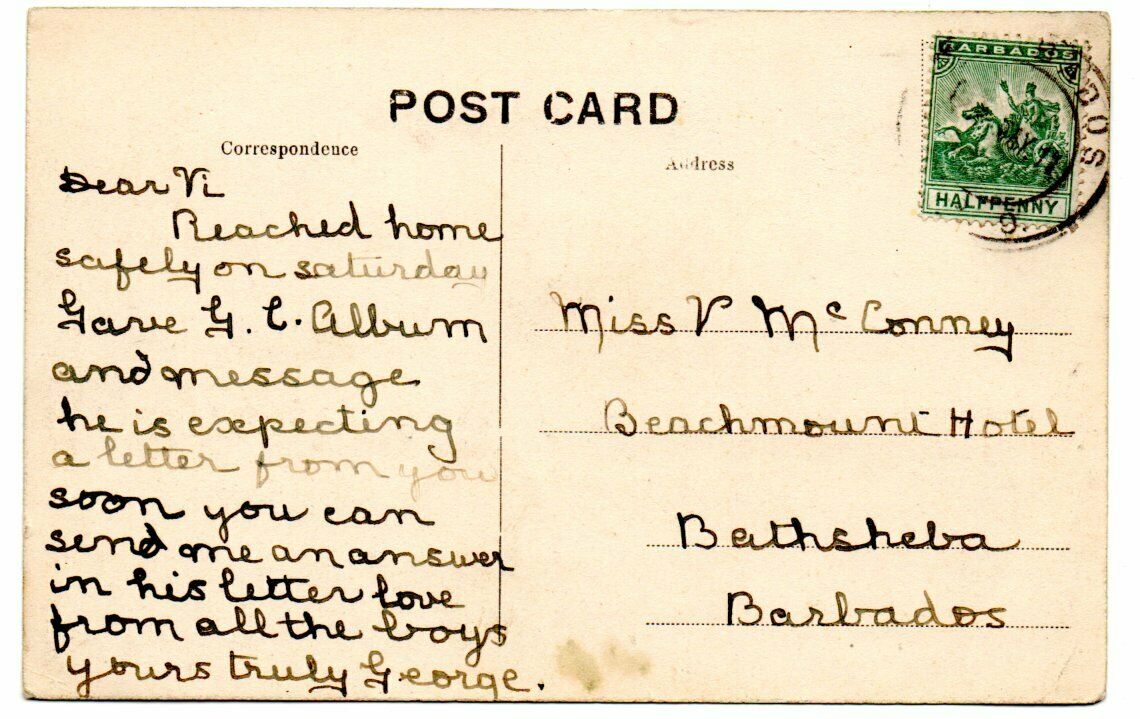 POST CARD
Correspondence
Address
BARBADOS
HALFPENNY
Dear Vi
Reached home
safely on saturday
Gave G. C. Album
and message
he is expecting
a letter from you
soon you can
send me an answer
in his letter love
from all the boys
yours truly George.
Miss V Mc Conney
Beachmount Hotel
Bathsheba
Barbados